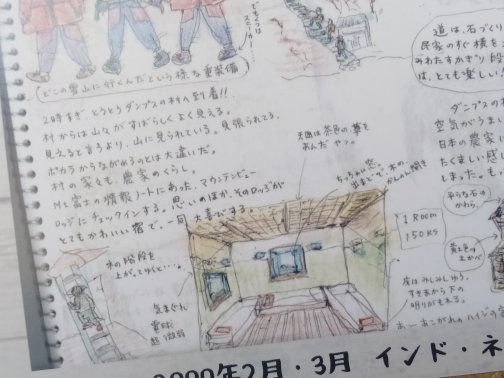 どくろは
スニーカー
どこの雪山に行くんだという様な重装備
道は、石づくり
民家のすぐ横を
みわたすかぎり段
は、とても楽しい
2時すぎ、とうとうダンプスの村へ到着!!
村からは山々がすばらしくよく見える。
見えると言うより、山に見られている。見張られてる。
ポカラからながめるのとは大違いだ。
村の家々も、農家のくらし。
Mt.富士の情報ノートにあった、マウンテンビュー
ロッジにチェックインする。思いのほか、そのロッジが
とてもかわいい宿で、一同大喜びする。
天井は茶色の草を
あんだやつ。
ちっちゃい窓。
木の
かんぬき
ダンプス
空気がうまい
日本の農家に
たくましい感
しまった。も
平らな石の
かわら。
1 Room
150 RS
黄色の
土かべ
床はみしみしゆう。
すきまから下の
明りがもれる。
木の階段を
上がってゆくと…。
気まぐれ
電球
超微弱
あーあこがれのハイジの
2000年2月・3月 インド・ネ